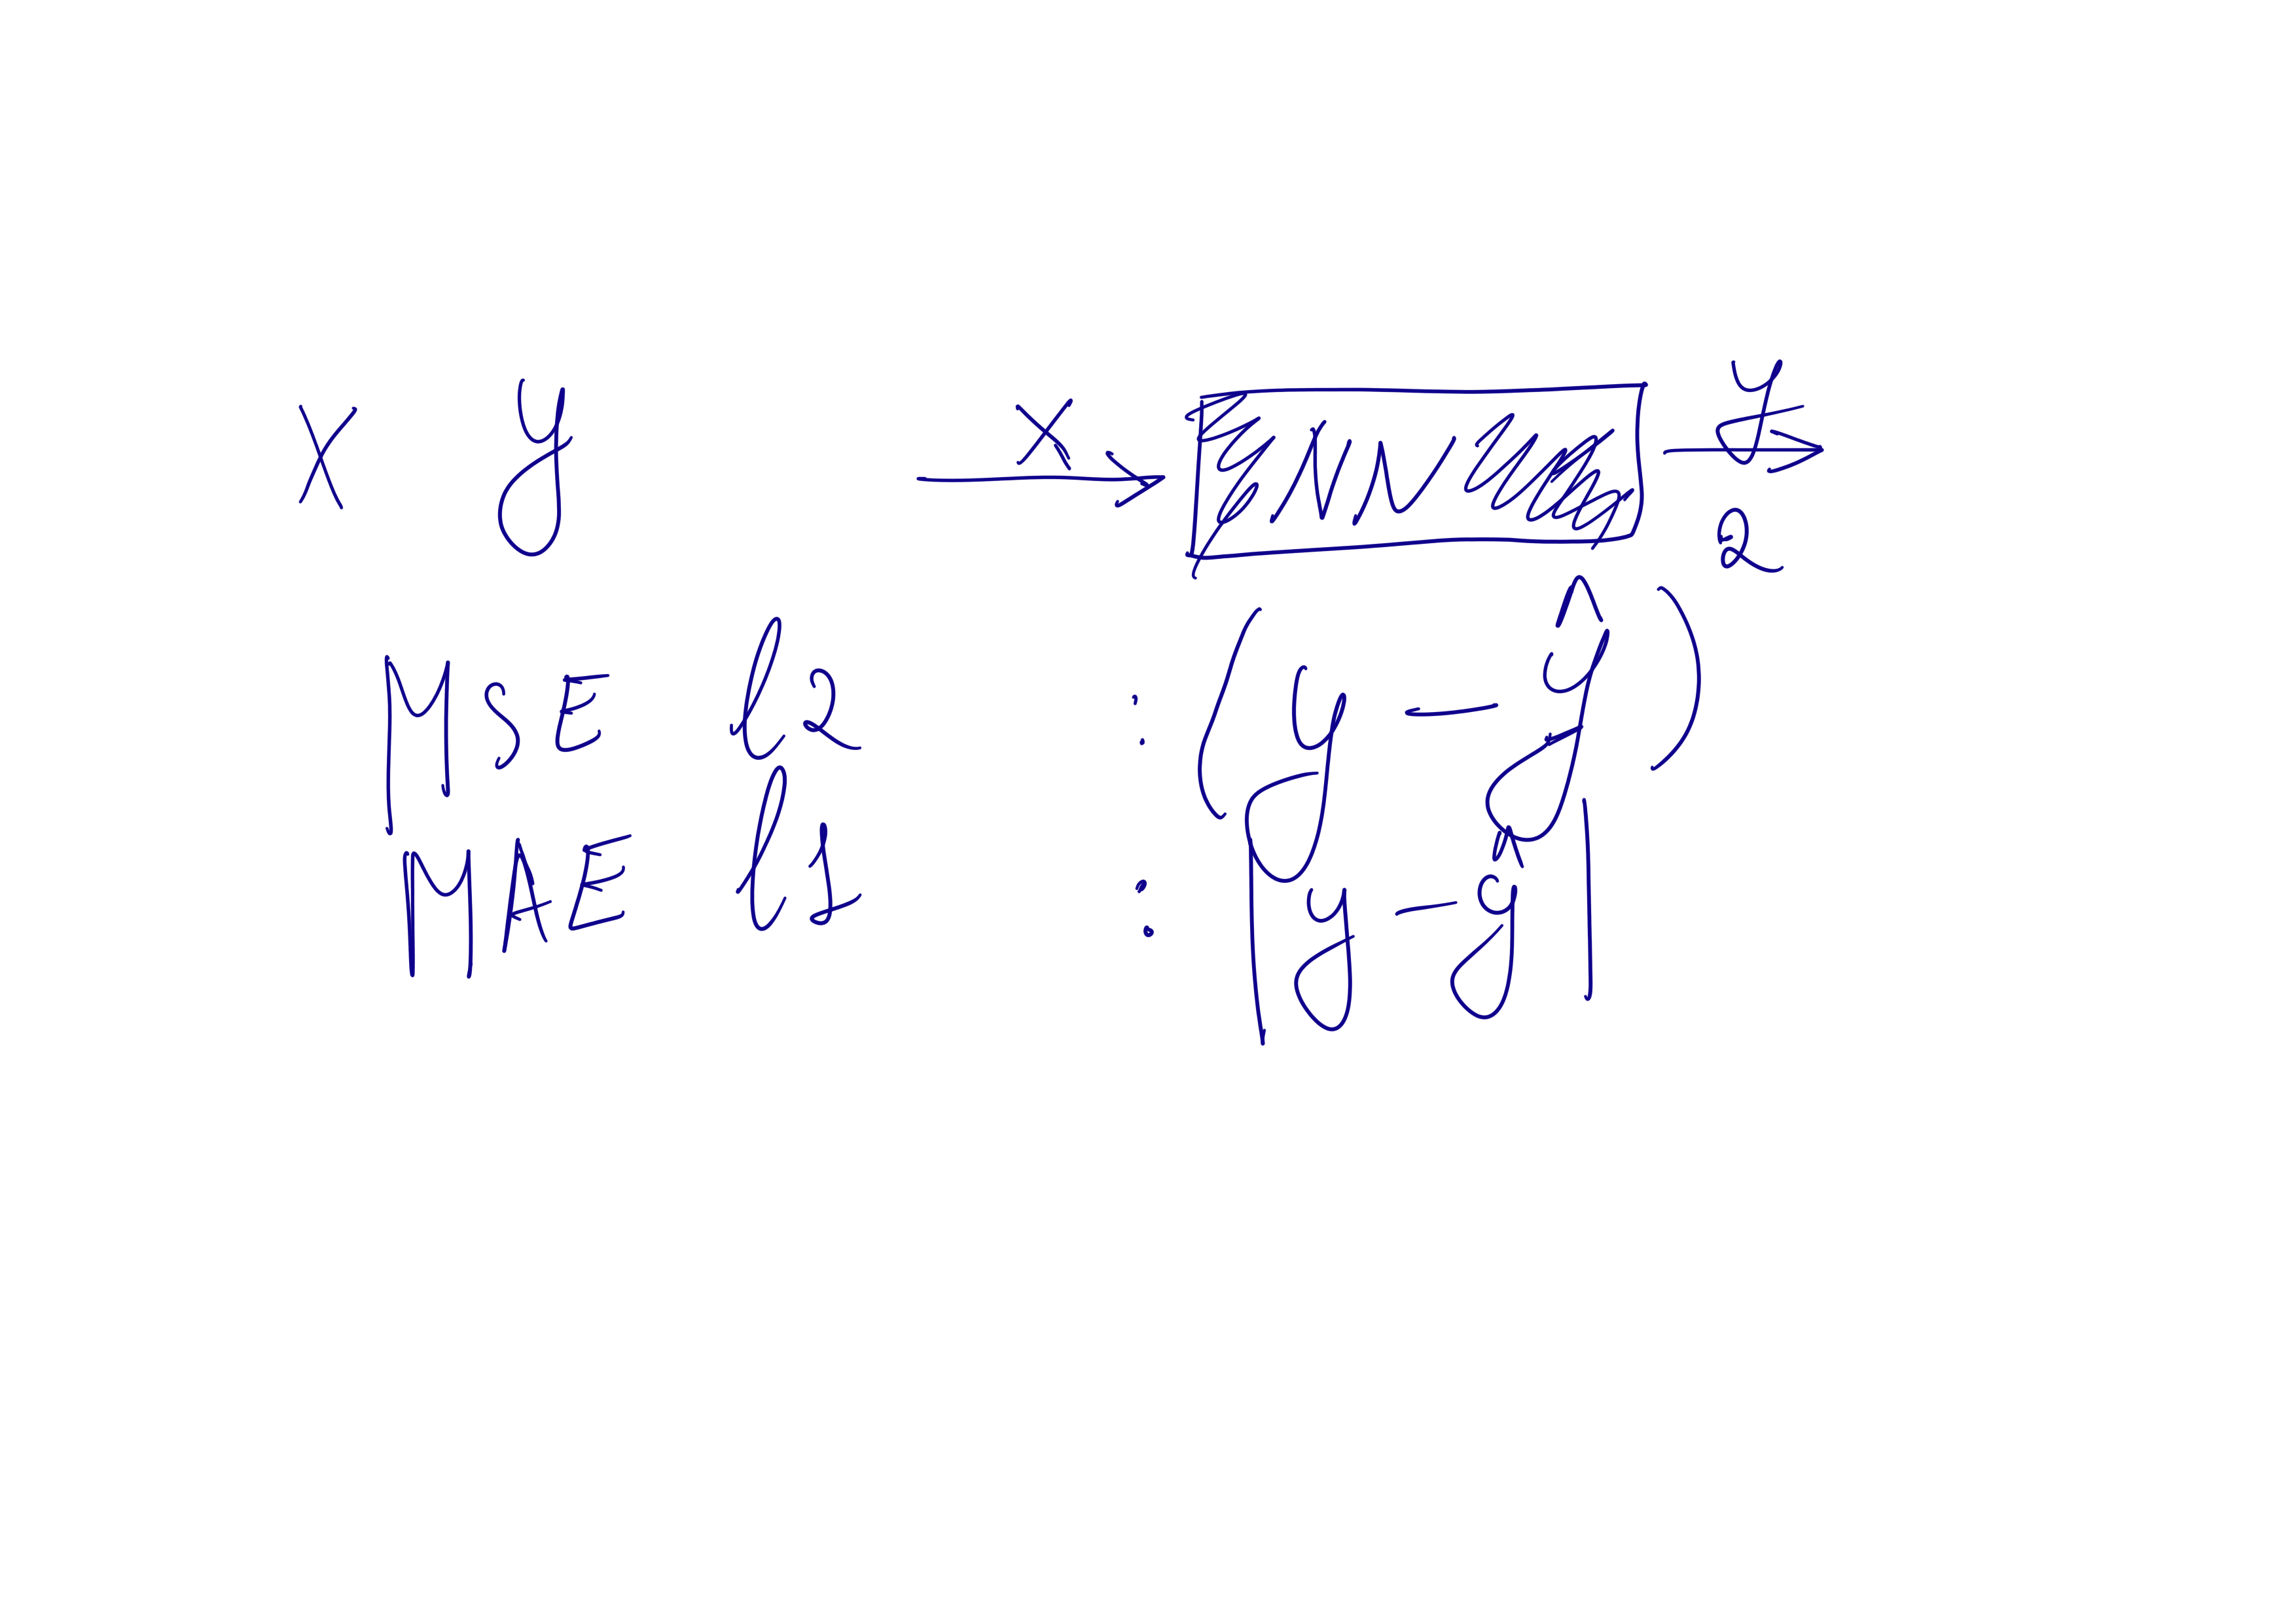 x y x NN y
MSE l2 : (y - ŷ)²
MAE l1 : |y - ŷ|